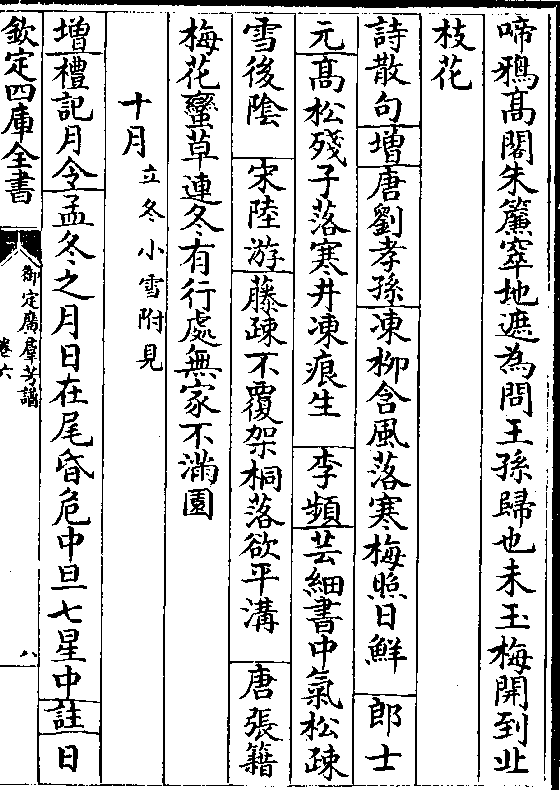 啼鴉高閣朱簾窣地遮為問王孫歸也未玉梅開到北
枝花
詩散句增唐劉孝孫凍柳含風落寒梅照日鮮　郎士
元高松殘子落寒井凍痕生　李頻芸細書中氣松疎
雪後陰　宋陸游藤疎不覆架桐落欲平溝　唐張籍
梅花蠻草連冬有行處無家不滿園
十月立冬小雪附見
增禮記月令孟冬之月日在尾昏危中旦七星中註日
欽定四庫全書
御定廣羣芳譜
卷六
八